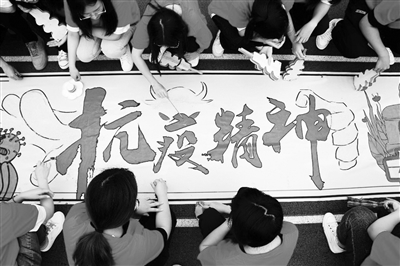 抗疫精神